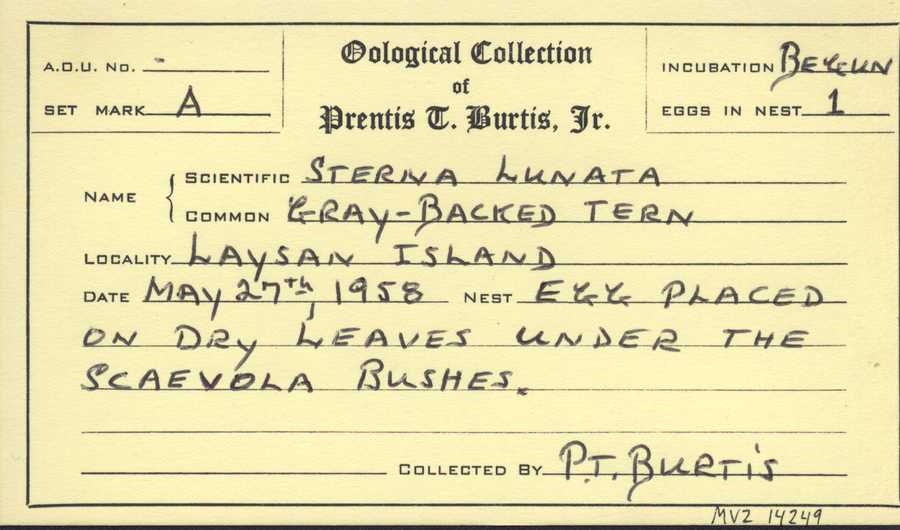 A.O.U. No. -
SET MARK A
Oological Collection
of
Prentis T. Burtis, Jr.
INCUBATION BEGUN
EGGS IN NEST 1
NAME
SCIENTIFIC STERNA LUNATA
COMMON GRAY-BACKED TERN
LOCALITY LAYSAN ISLAND
DATE MAY 27th, 1958 NEST EGG PLACED
ON DRY LEAVES UNDER THE
SCAEVOLA BUSHES.
COLLECTED BY P.T. BURTIS
MVZ 14249